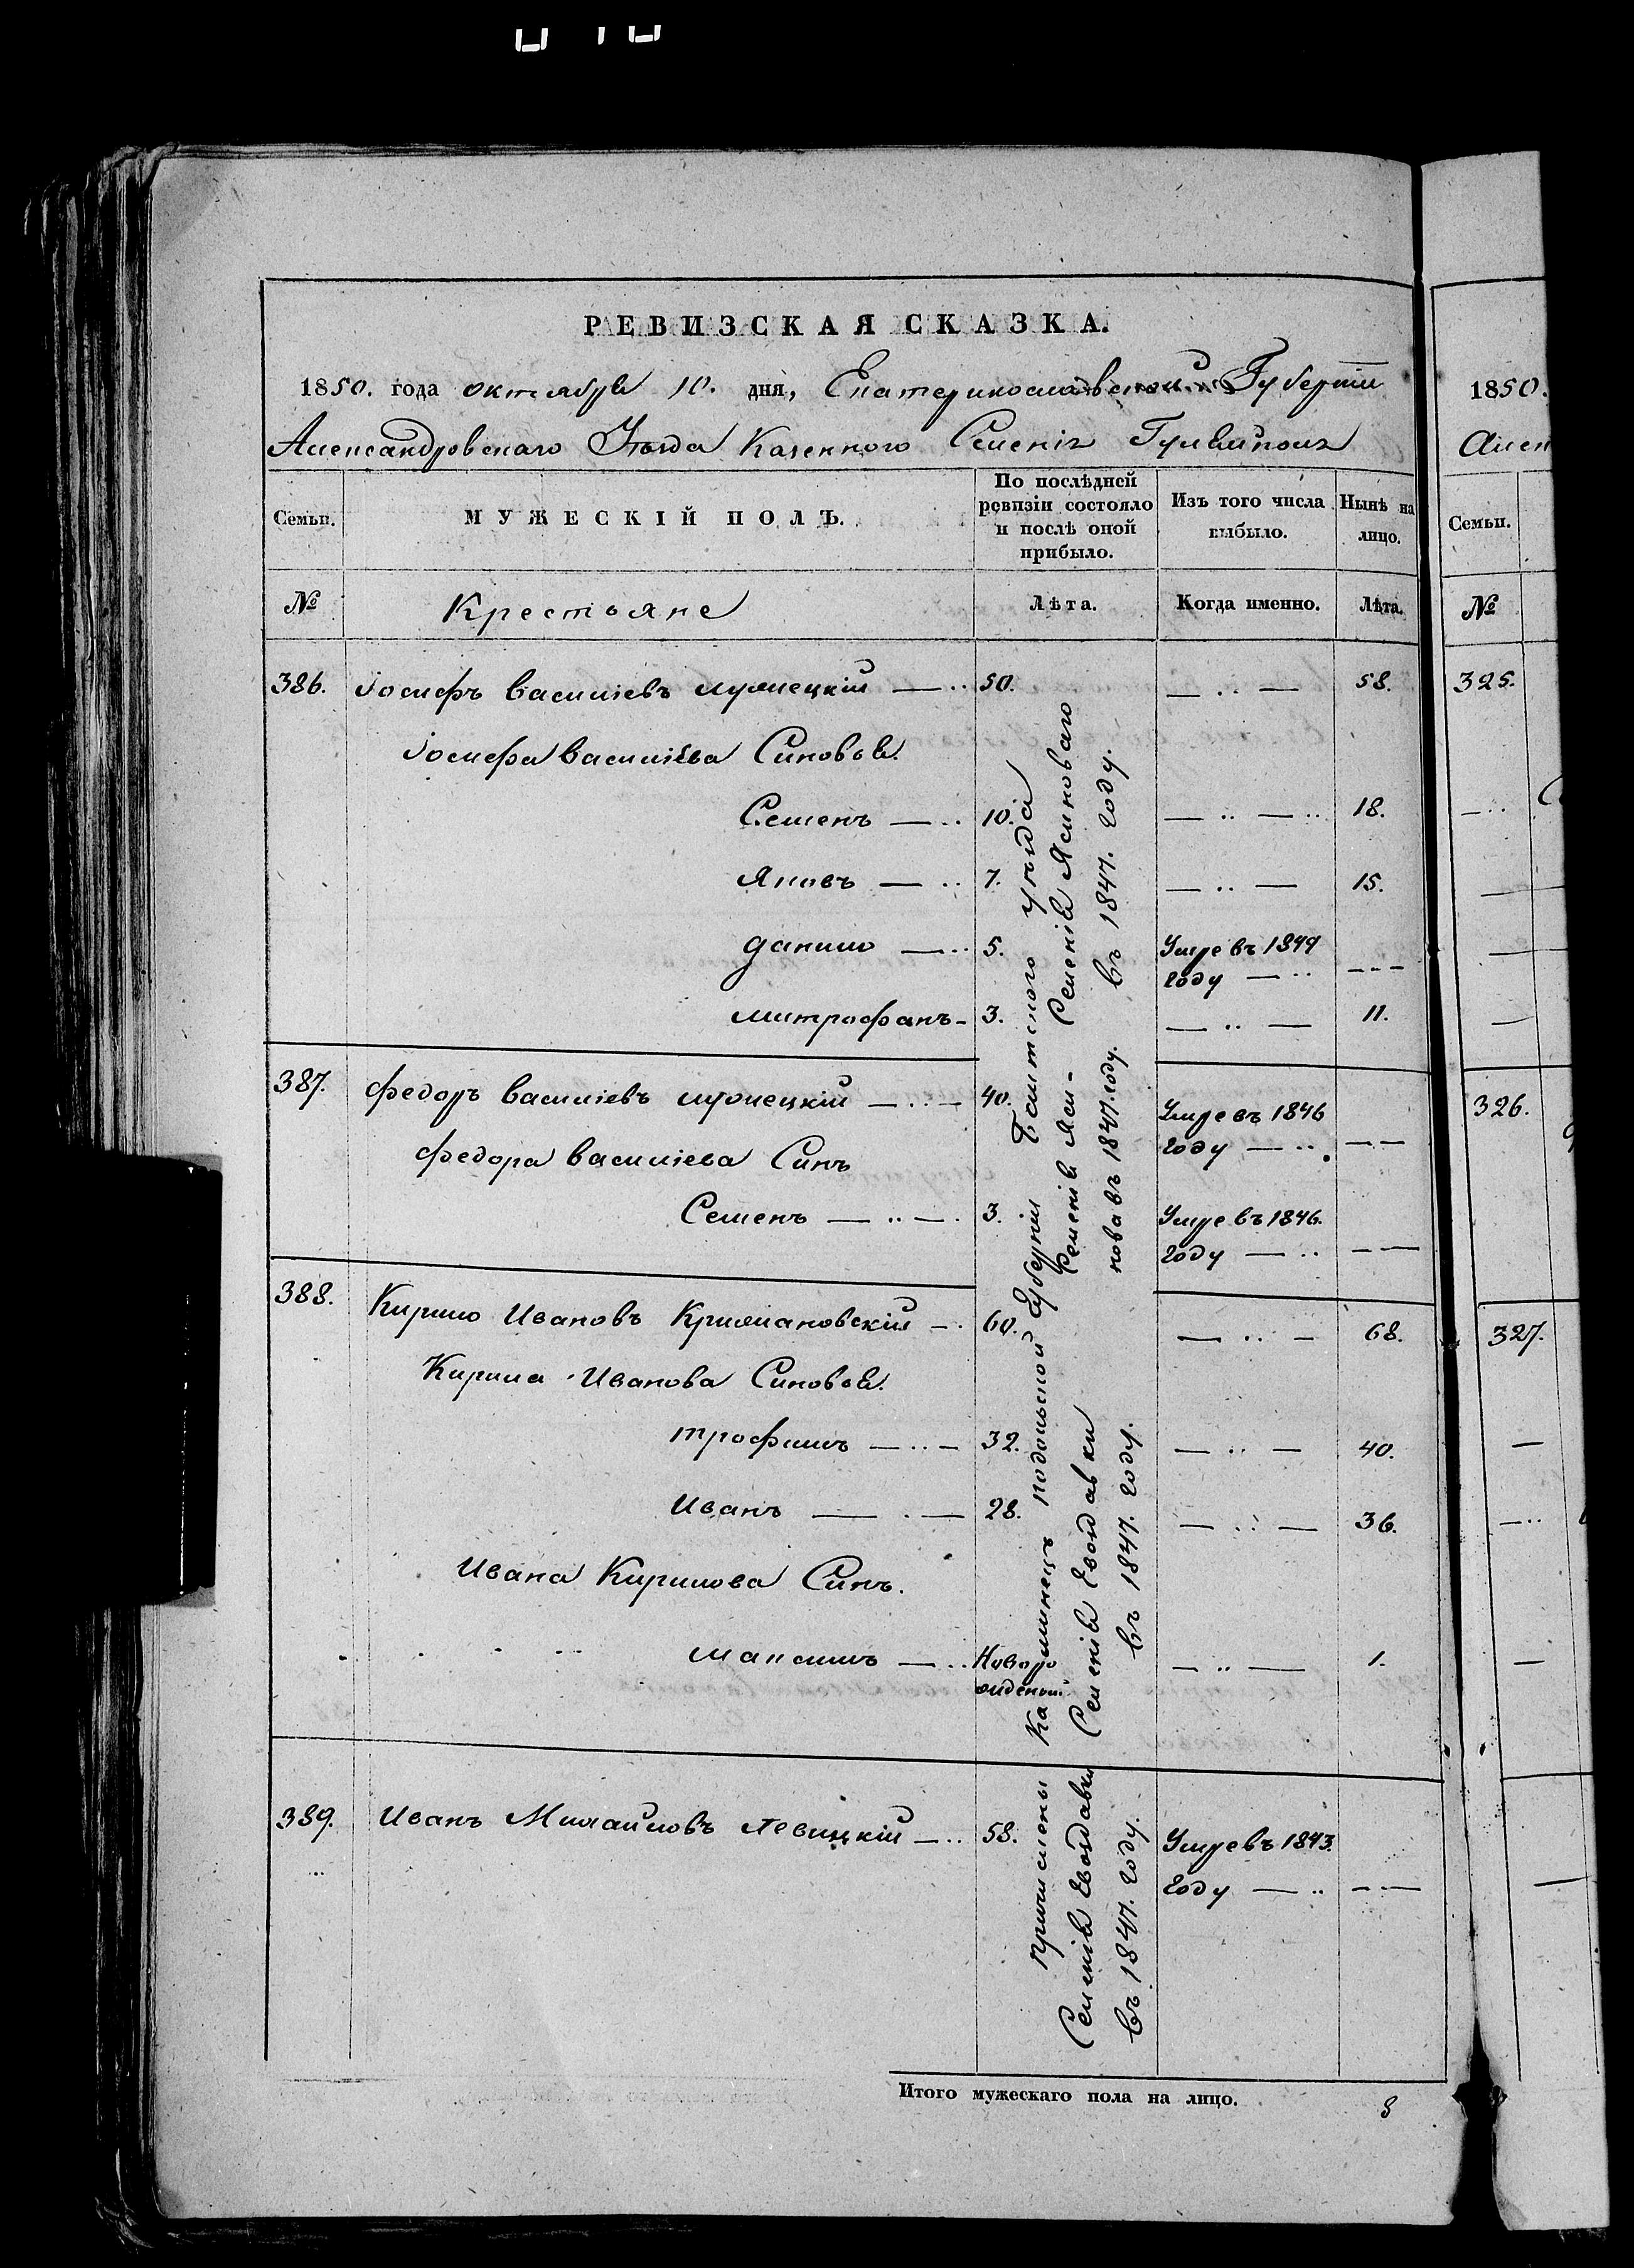 РЕВИЗСКАЯ СКАЗКА.
1850. года октября 10. дня, Екатеринославской Губернии
Александровскаго Уезда Казенного Селенія Гуляйполя
Семьи. МУЖЕСКІЙ ПОЛЪ. По послѣдней ревизіи состояло и послѣ оной прибыло. Изъ того числа выбыло. Нынѣ на лицо.
№ Крестьяне Лѣта. Когда именно. Лѣта.
386. Іосифъ Василіевъ 50. 58.
Іосифа Василіева Синовья.
Семенъ 10. 18.
Яковъ 7. 15.
Данило 5. Умре въ 1849 году
Митрофанъ 3. 11.
387. Федоръ Василіевъ 40. Умре въ 1846 году
Федора Василіева Синъ
Семенъ 3. Умре въ 1846. году
388. Кирило Ивановъ Крижановскій 60. 68.
Кирила Иванова Синовья.
Трофимъ 32. 40.
Иванъ 28. 36.
Ивана Кирилова Синъ.
Максимъ Новорожденый 1.
389. Иванъ Михайловъ Левицкій 58. Умре въ 1843. году
Каминецъ Подольской Губернии Балтского уезда
Селенія Яси-
нова въ 1847. году.
Селенія Ясиноваго
въ 1847. году.
Селенія
въ 1847. году.
причислены
Селенія
въ 1847. году.
Итого мужескаго пола на лицо. 8
1850.
Алек
Семьи.
№
325.
326.
327.